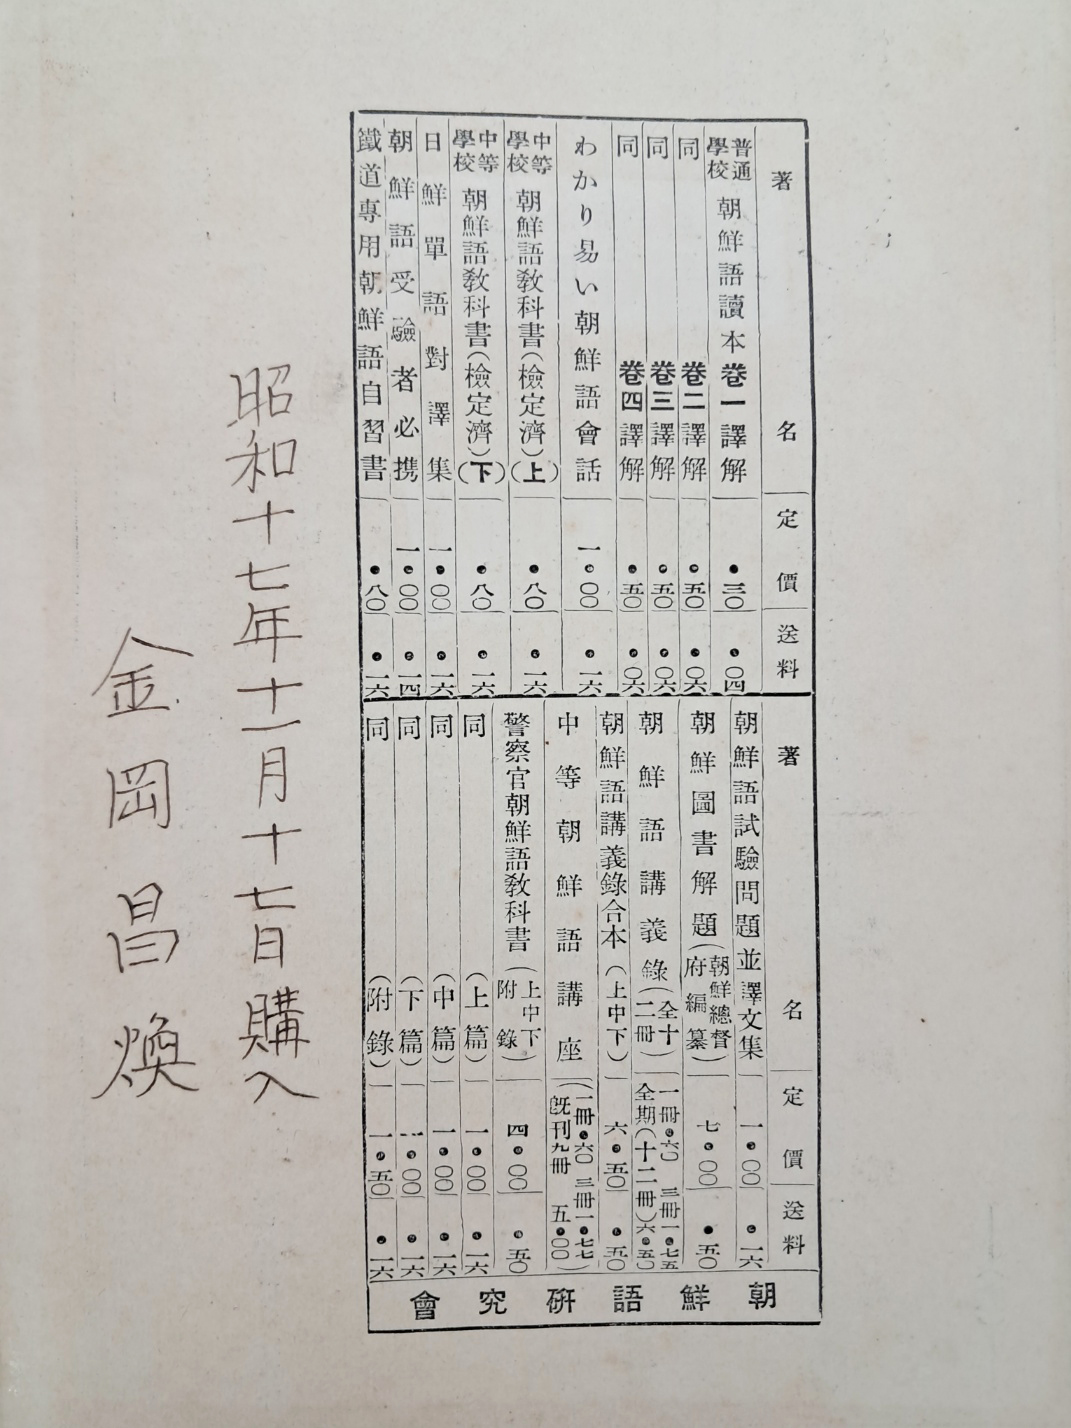 著名 定價 送料
普通學校 朝鮮語讀本卷一譯解 •三〇 •〇四
同 卷二譯解 •五〇 •〇六
同 卷三譯解 •五〇 •〇六
同 卷四譯解 •五〇 •〇六
わかり易い朝鮮語會話 一•〇〇 •一六
中等學校 朝鮮語敎科書(檢定濟)(上) •八〇 •一六
中等學校 朝鮮語敎科書(檢定濟)(下) •八〇 •一六
日鮮單語對譯集 一•〇〇 •一六
朝鮮語受驗者必携 一•〇〇 •一四
鐵道專用朝鮮語自習書 •八〇 •一六
著名 定價 送料
朝鮮語試驗問題並譯文集 一•〇〇 •一六
朝鮮圖書解題(朝鮮總督府編纂) 七•〇〇 •五〇
朝鮮語講義錄(全十二冊) 一冊•六〇 三冊一•七五 全期(十二冊)六•五〇
朝鮮語講義錄合本(上中下) 六•五〇 •五〇
中等朝鮮語講座 (一冊•六〇 三冊一•七七) 旣刊九冊 五•〇〇
警察官朝鮮語敎科書(上中下附錄) 四•〇〇 •五〇
同 (上篇) 一•〇〇 •一六
同 (中篇) 一•〇〇 •一六
同 (下篇) 一•〇〇 •一六
同 (附錄) 一•五〇 •一六
朝鮮語硏究會
昭和十七年十一月十七日購入
金岡昌煥